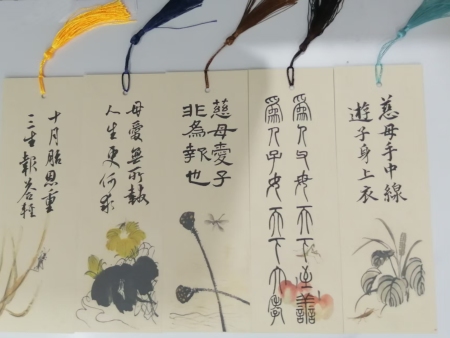 慈母手中線
遊子身上衣
爲人父母天下至善
爲人子女天下大孝
慈母愛子
非為報也
母愛無所報
人生更何求
十月胎恩重
三生報答輕